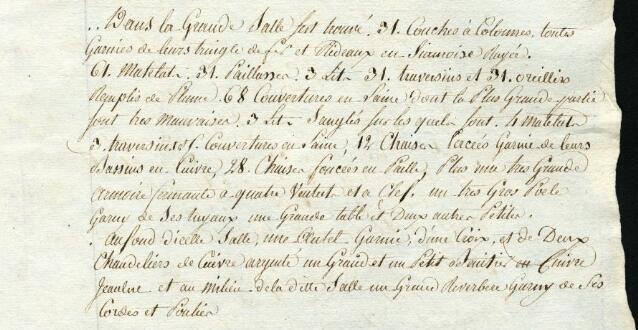 .. Dans la Grande Salle fort trouvé. 31. Couches à Colonnes, toutes
Garnies de leurs tringle de fil et Rideaux en Siamoise Rayée.
61. Matelats. 31. Paillasses. 3 Lits 31. traversins et 31. oreillers
Remplis de Plume. 68 Couvertures en Laine dont la Plus Grande partie
sont tres Mauvaises. 3. Lits Sanglés sur les quels sont. 4 Matelats
3. traversins et 5. Couvertures en Laine, 12 Chaises Percées Garnie de leurs
Bassins en Cuivre, 28. Chaises foncées en Paille, Plus une tres Grande
armoire fermante à quatre Ventaux et a Clef. un tres Gros Poële
Garny de Ses tuyaux une Grande table et Deux autres Petites.
. au fond d'icelle Salle, une Autel Garnie, d'une Croix, et de Deux
Chandeliers de Cuivre argenté un Grand et un Petit Benitier en Cuivre
Jeaulne et au milieu de la ditte Salle un Grand Reverbere Garny de Ses
Cordes et Poulies